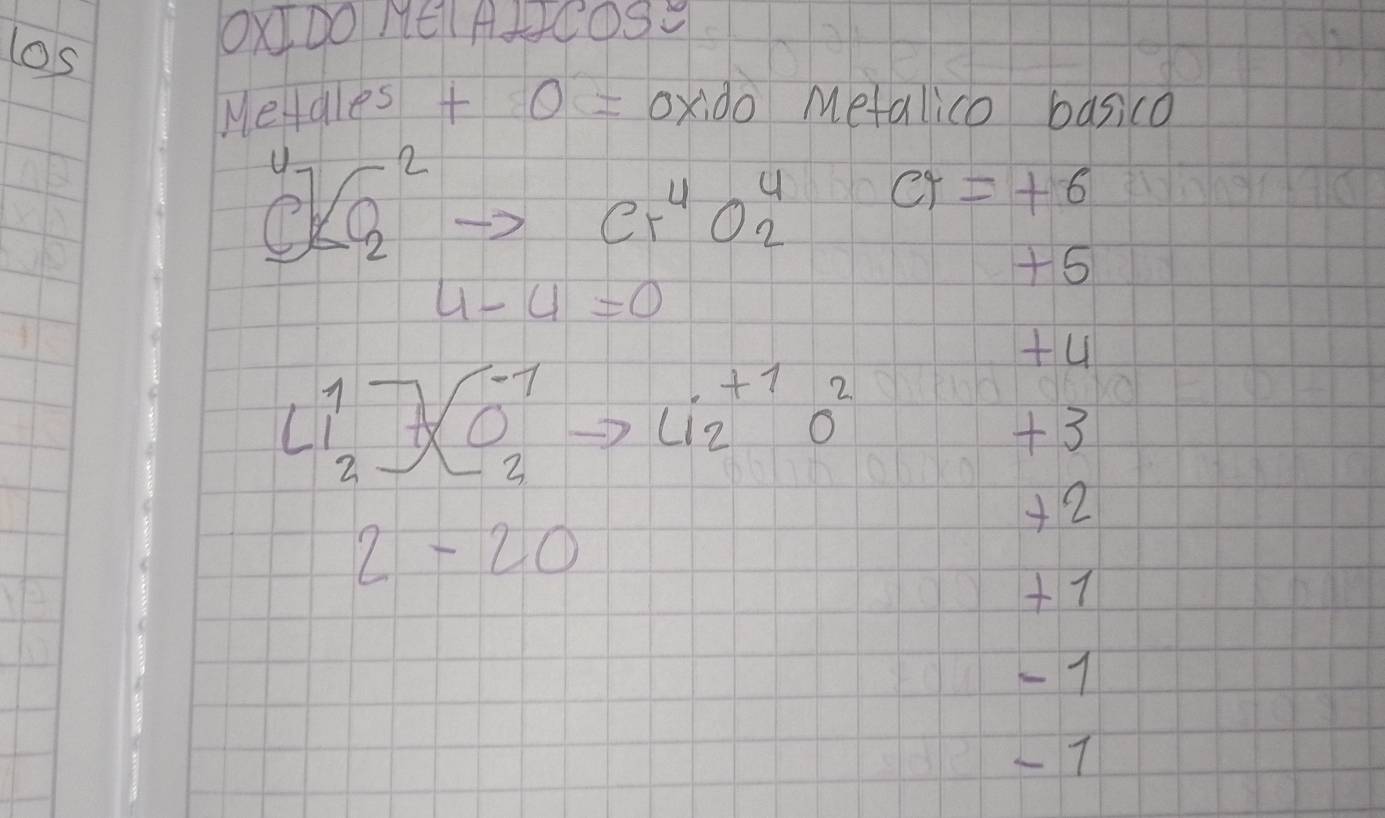 los
OXIDO METALICOS:
Metales + O = oxido Metalico basico
Cr⁴ O₂² → Cr⁴ O₂⁴ Cr = +6
+5
4 - 4 = 0
+4
Li₂¹ + O₂⁻¹ → Li₂⁺¹ O² +3
+2
2 - 20
+1
- 1
- 1